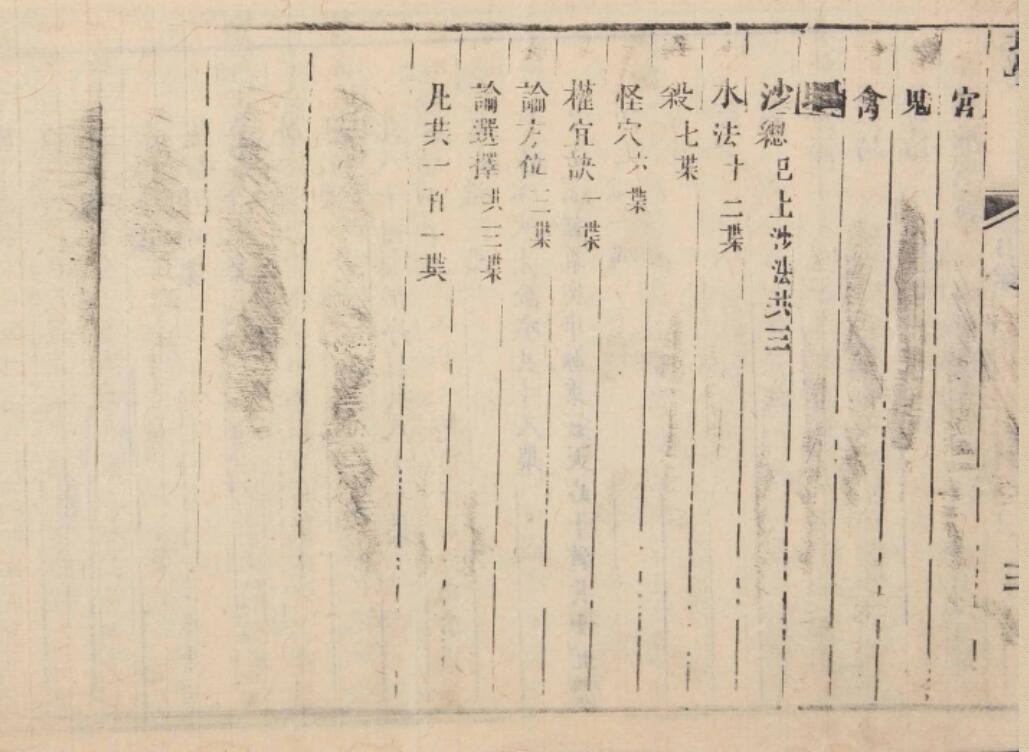 官
鬼
禽
沙總已上沙法共三
水法十二葉
殺七葉
怪穴六葉
權宜訣一葉
論方位三葉
論選擇共三葉
凡共一百一葉